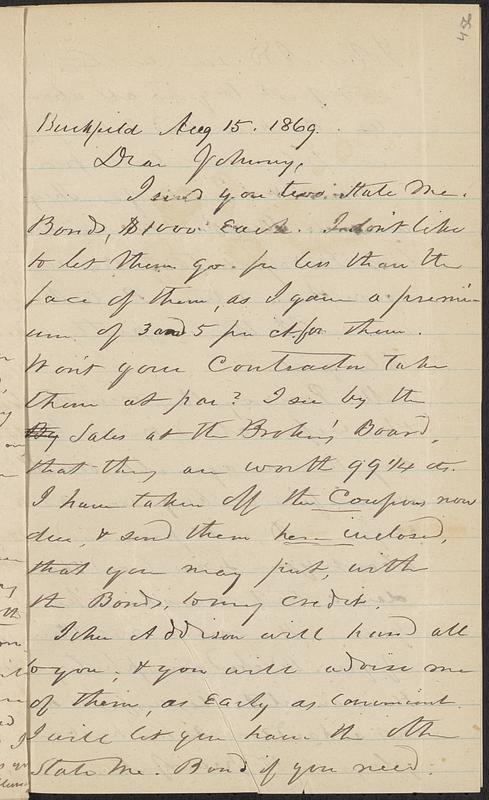 456
Buckfield Aug 15. 1869.
Dear Johnny,
I send you two State Me.
Bonds, $1000 Each. I don't like
to let them go for less than the
face of them, as I gave a premi-
um of 3 and 5 pr ct. for them.
Won't your Contractor take
them at par? I see by the
By Sales at the Brokers Board,
that they are worth 99 1/4 cts.
I have taken off the Coupons now
due, & send them here inclosed,
that you may put, with
the Bonds, to my credit.
John Addison will hand all
to you, & you will advise me
of them, as Early as convenient.
I will let you have the other
State Me. Bond if you need.